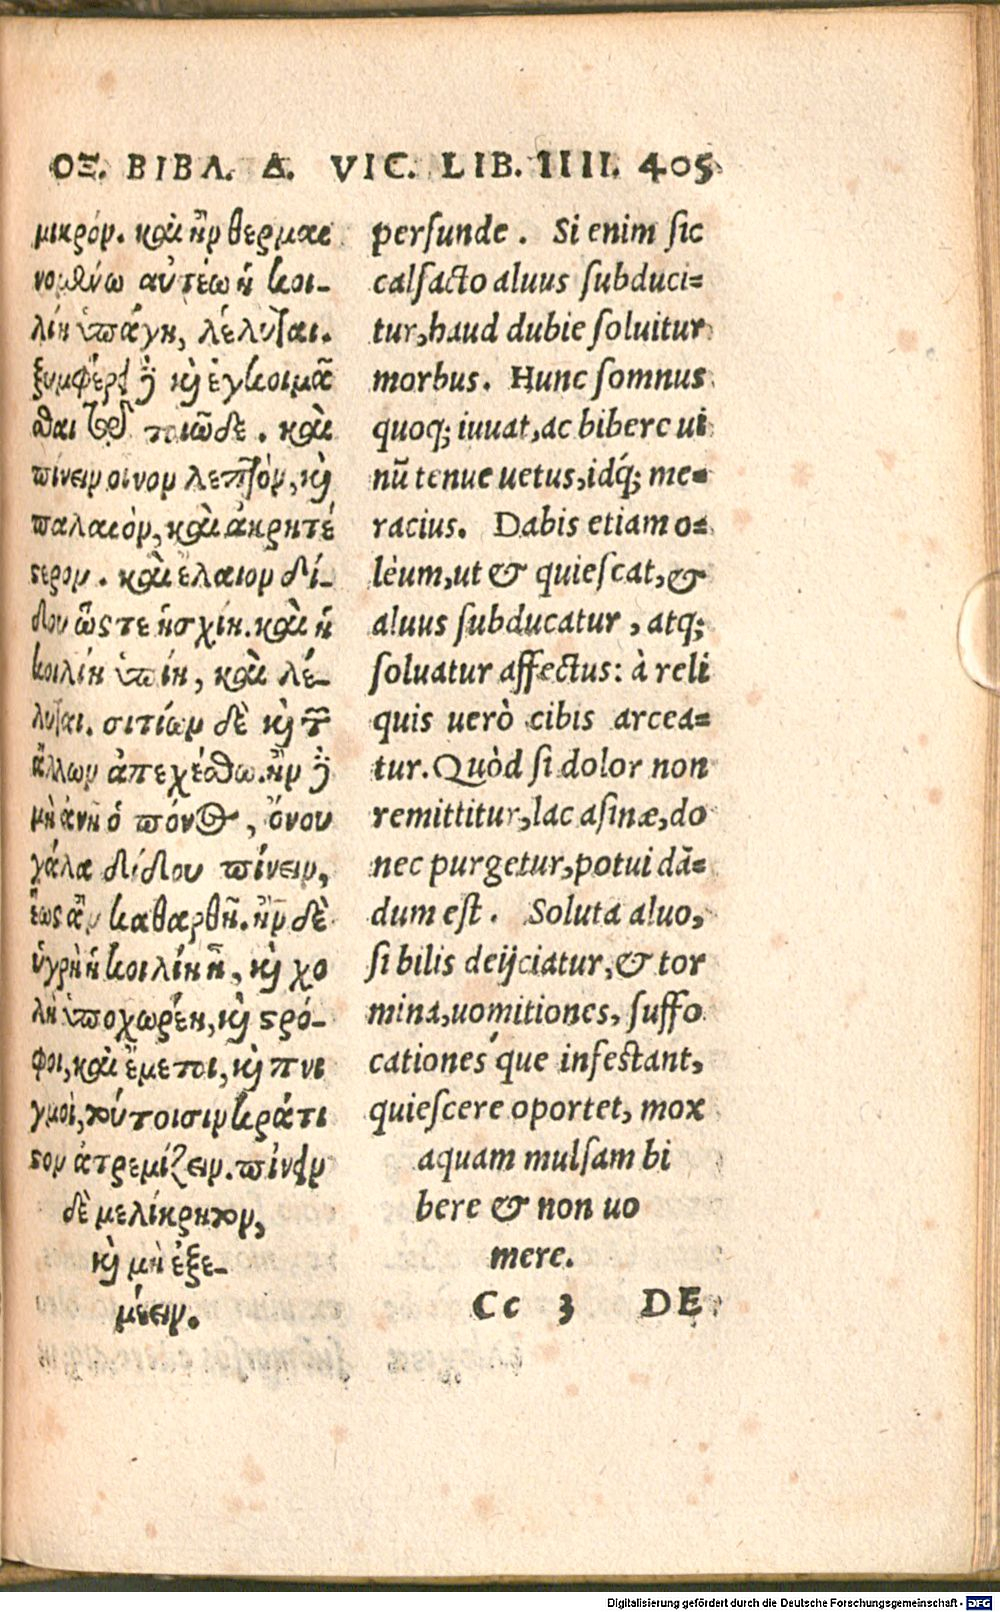 ΟΞ. ΒΙΒΛ. Δ. VIC. LIB. IIII. 405
μικρόν. καὶ ἢν θερμαι
νομένω αὐτέω ἡ κοι-
λίη ὑπάγη, λέλυται.
ξυμφέρει δὲ καὶ ἐγκοιμᾶ
σθαι τῷ τοιῶδε. καὶ
πίνειν οἶνον λεπτὸν, καὶ
παλαιὸν, καὶ ἀκρητέ
στερον. καὶ ἔλαιον δί-
δου ὥστε ἡσχίη. καὶ ἡ
κοιλίη ὑπίη, καὶ λέ-
λυται. σιτίων δὲ καὶ τῶν
ἄλλων ἀπεχέσθω. ἢν δὲ
μὴ ἀνῆ ὁ πόνος, ὄνου
γάλα δίδου πίνειν,
ἕως ἂν καθαρθῆ. ἢν δὲ
ὑγρὴ ἡ κοιλίη ἦ, καὶ χο
λὴ ὑποχωρέη, καὶ στρό-
φοι, καὶ ἔμετοι, καὶ πνι
γμοὶ, τούτοισιν κράτι
στον ἀτρεμίζειν. πίνειν
δὲ μελίκρητον,
καὶ μὴ ἐξε-
μέειν.
persunde. Si enim sic
calfacto aluus subduci-
tur, haud dubie soluitur
morbus. Hunc somnus
quoq; iuuat, ac bibere ui
nũ tenue uetus, idq́; me-
racius. Dabis etiam o-
leum, ut & quiescat, &
aluus subducatur, atq;
soluatur affectus: à reli
quis uerò cibis arcea-
tur. Quòd si dolor non
remittitur, lac asinæ, do
nec purgetur, potui dã-
dum est. Soluta aluo,
si bilis deijciatur, & tor
mina, uomitiones, suffo
cationes'que infestant,
quiescere oportet, mox
aquam mulsam bi
bere & non uo
mere.
Cc 3 DE
Digitalisierung gefördert durch die Deutsche Forschungsgemeinschaft - DFG